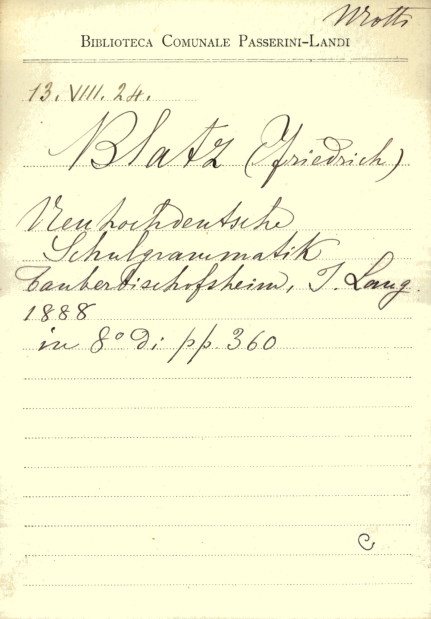 Biblioteca Comunale Passerini-Landi
13. VIII. 24.
Blatz (Friedrich)
Neuhochdeutsche
Schulgrammatik
Tauberbischofsheim, J. Lang.
1888
in 8° di pp. 360
C